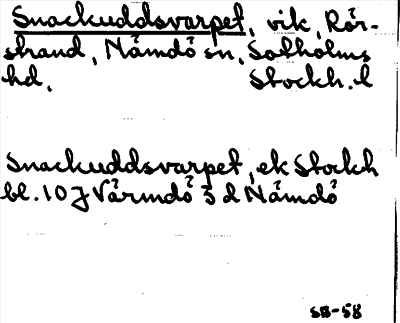 Snackuddsvarpet, vik, Rör-
strand, Nämdö sn, Sotholms
hd, Stockh. l
Snackuddsvarpet, ek Stockh
bl. 10 J Värmdö 3 d Nämdö
SB-58